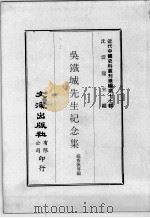 近代中國史料叢刊續編第七十輯
沈雲龍主編
吳鐵城先生紀念集
文海出版社有限公司印行